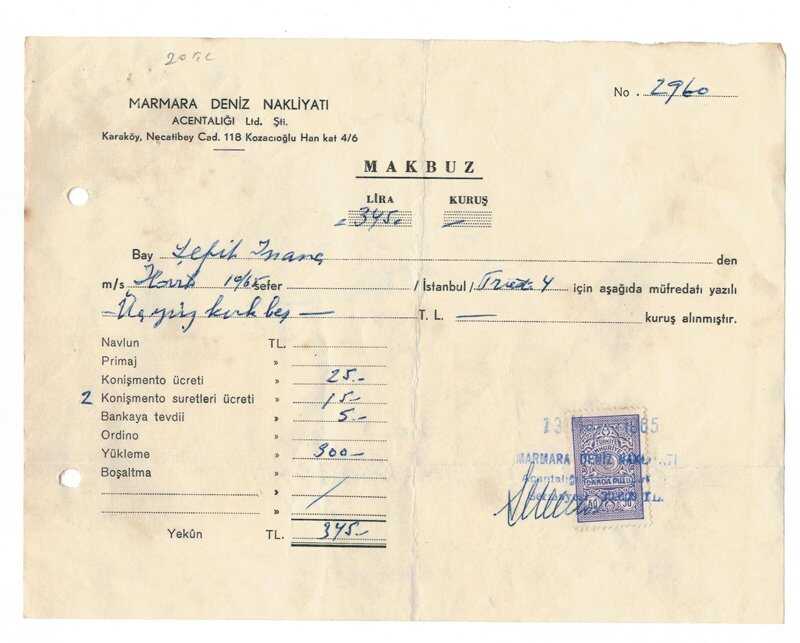 20 TL
No. 2960
MARMARA DENİZ NAKLİYATI
ACENTALIĞI Ltd. Şti.
Karaköy, Necatibey Cad. 118 Kozacıoğlu Han kat 4/6
MAKBUZ
LİRA KURUŞ
345.- —
Bay Şefik İnanç den
m/s 1965 sefer / İstanbul / için aşağıda müfredatı yazılı
Üçyüz kırkbeş — T. L. — kuruş alınmıştır.
Navlun TL.
Primaj »
Konişmento ücreti » 25.-
2 Konişmento suretleri ücreti » 15.-
Bankaya tevdii » 5.-
Ordino »
Yükleme » 300.-
Boşaltma »
»
»
Yekûn TL. 345.-
MARMARA DENİZ NAKLİYATI